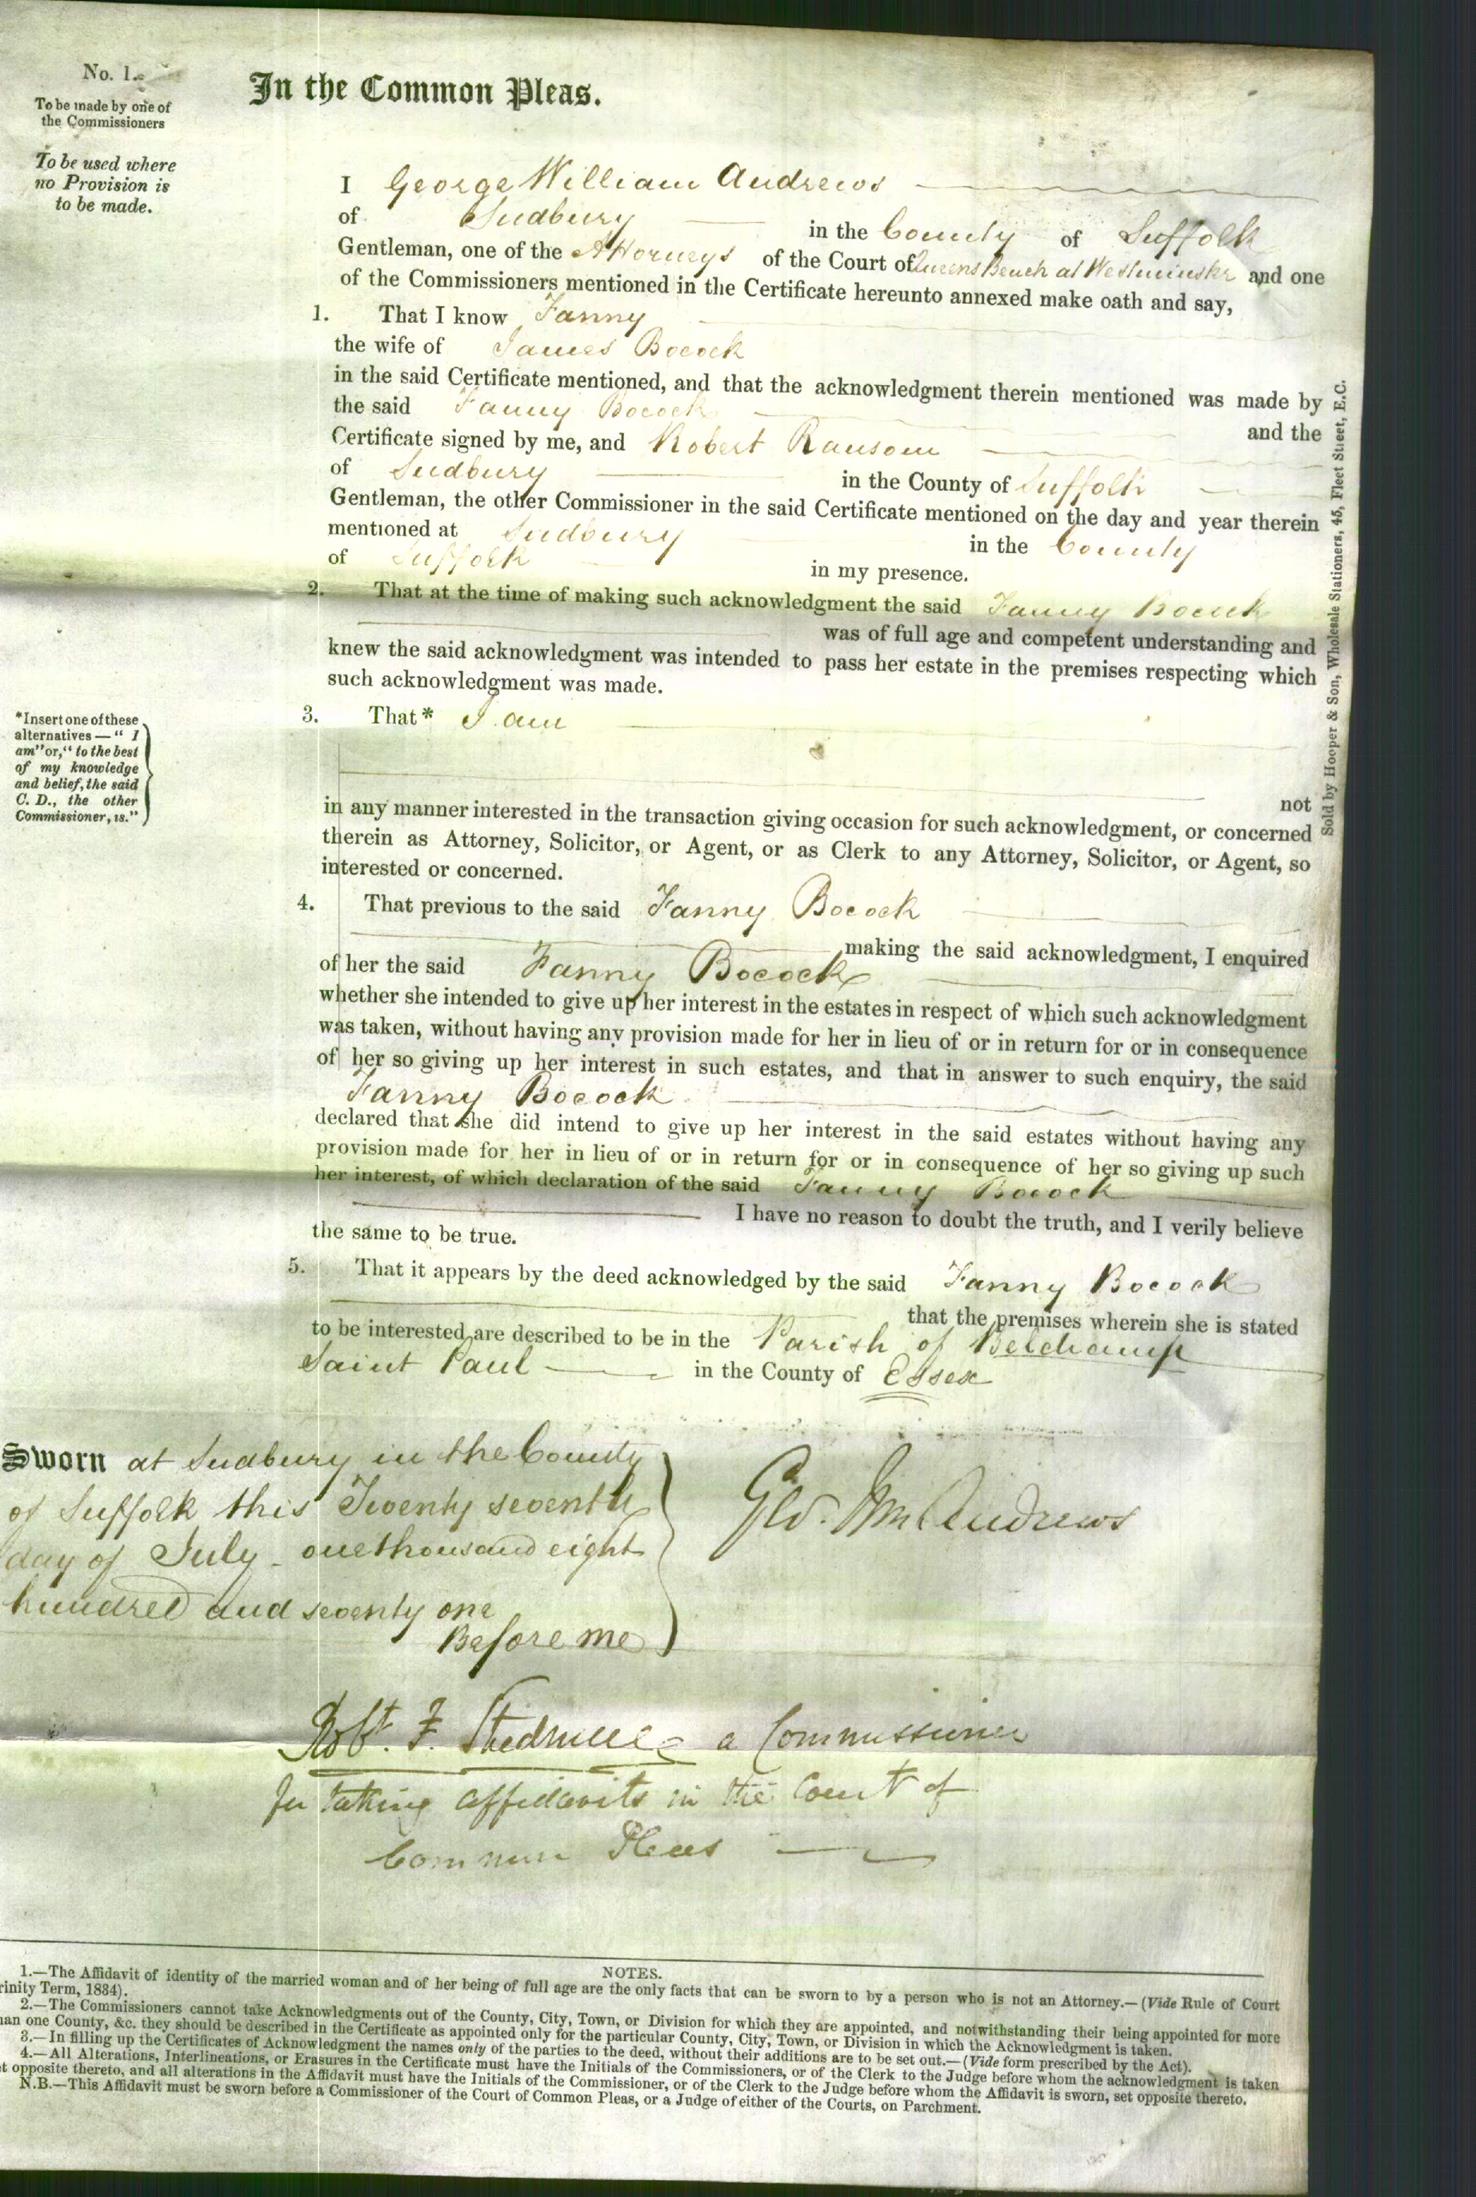 No. 1.
To be made by one of
the Commissioners
To be used where
no Provision is
to be made.
In the Common Pleas.
I George William Andrews
of Sudbury in the County of Suffolk
Gentleman, one of the Attorneys of the Court of Queens Bench at Westminster and one
of the Commissioners mentioned in the Certificate hereunto annexed make oath and say,
1. That I know Fanny
the wife of James Bocock
in the said Certificate mentioned, and that the acknowledgment therein mentioned was made by
the said Fanny Bocock and the
Certificate signed by me, and Robert Ransom
of Sudbury in the County of Suffolk
Gentleman, the other Commissioner in the said Certificate mentioned on the day and year therein
mentioned at Sudbury in the County
of Suffolk in my presence.
2. That at the time of making such acknowledgment the said Fanny Bocock
was of full age and competent understanding and
knew the said acknowledgment was intended to pass her estate in the premises respecting which
such acknowledgment was made.
*Insert one of these
alternatives — " I
am" or, " to the best
of my knowledge
and belief, the said
C. D., the other
Commissioner, is."
3. That* I am
not
in any manner interested in the transaction giving occasion for such acknowledgment, or concerned
therein as Attorney, Solicitor, or Agent, or as Clerk to any Attorney, Solicitor, or Agent, so
interested or concerned.
4. That previous to the said Fanny Bocock
making the said acknowledgment, I enquired
of her the said Fanny Bocock
whether she intended to give up her interest in the estates in respect of which such acknowledgment
was taken, without having any provision made for her in lieu of or in return for or in consequence
of her so giving up her interest in such estates, and that in answer to such enquiry, the said
Fanny Bocock
declared that she did intend to give up her interest in the said estates without having any
provision made for her in lieu of or in return for or in consequence of her so giving up such
her interest, of which declaration of the said Fanny Bocock
I have no reason to doubt the truth, and I verily believe
the same to be true.
5. That it appears by the deed acknowledged by the said Fanny Bocock
that the premises wherein she is stated
to be interested are described to be in the Parish of Belchamp
Saint Paul in the County of Essex
Sold by Hooper & Son, Wholesale Stationers, 45, Fleet Street, E.C.
Sworn at Sudbury in the County
of Suffolk this Twenty seventh
day of July one thousand eight
hundred and seventy one
Before me
Geo. Wm Andrews
Robt. F. a Commissioner
for taking affidavits in the Court of
Common Pleas
NOTES.
1.—The Affidavit of identity of the married woman and of her being of full age are the only facts that can be sworn to by a person who is not an Attorney.—(Vide Rule of Court
rinity Term, 1834).
2.—The Commissioners cannot take Acknowledgments out of the County, City, Town, or Division for which they are appointed, and notwithstanding their being appointed for more
an one County, &c. they should be described in the Certificate as appointed only for the particular County, City, Town, or Division in which the Acknowledgment is taken.
3.—In filling up the Certificates of Acknowledgment the names only of the parties to the deed, without their additions are to be set out.—(Vide form prescribed by the Act).
4.—All Alterations, Interlineations, or Erasures in the Certificate must have the Initials of the Commissioners, or of the Clerk to the Judge before whom the acknowledgment is taken
t opposite thereto, and all alterations in the Affidavit must have the Initials of the Commissioner, or of the Clerk to the Judge before whom the Affidavit is sworn, set opposite thereto.
N.B.—This Affidavit must be sworn before a Commissioner of the Court of Common Pleas, or a Judge of either of the Courts, on Parchment.